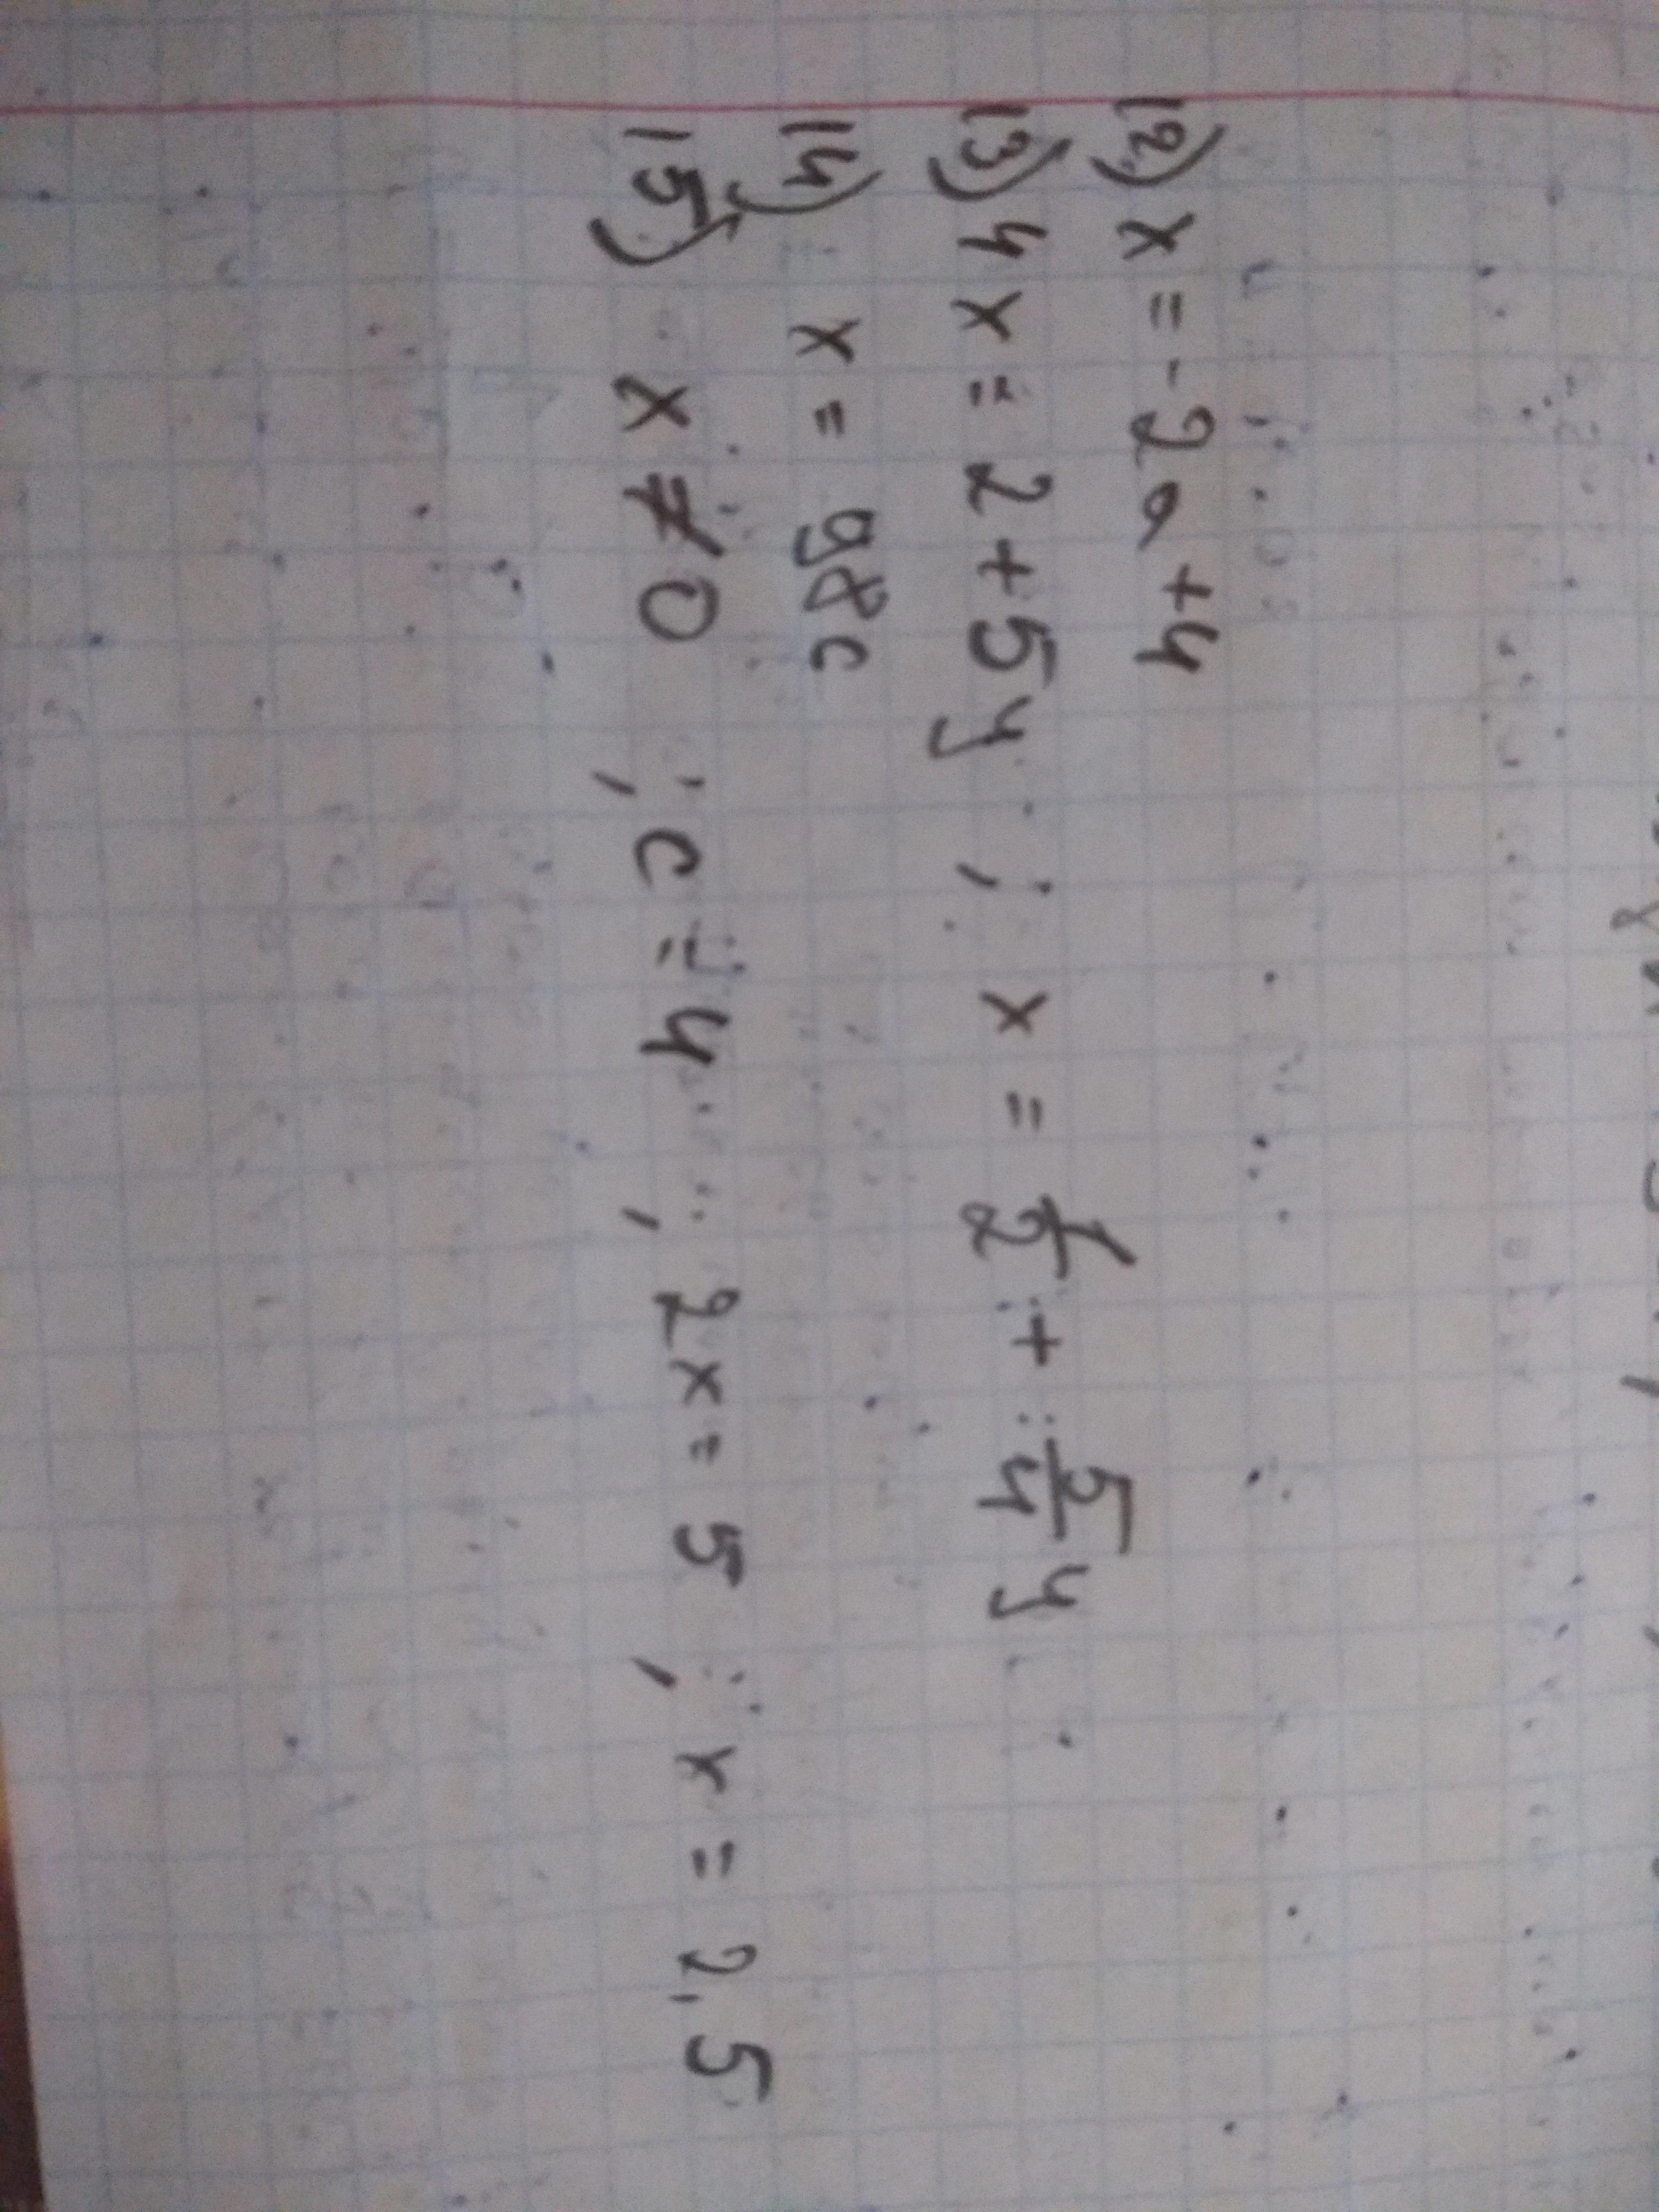 12) x = -2a + 4
13) 4x = 2 + 5y ; x = 1/2 + 5/4 y
14) x = 98c
15) x ≠ 0 ; c = 4 ; 2x = 5 ; x = 2,5